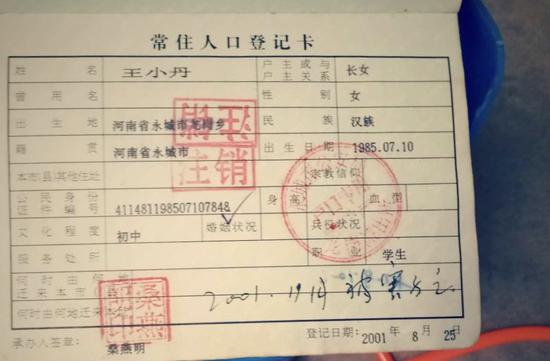 常住人口登记卡
姓名 王小丹 户主或与户主关系 长女
曾用名 性别 女
出生地 河南省永城市 乡 民族 汉族
籍贯 河南省永城市 出生日期 1985.07.10
本市(县)其他住址 宗教信仰
公民身份证件编号 411481198507107848 身高 血型
文化程度 初中 婚姻状况 兵役状况
服务处所 职业 学生
何时由何地迁来本市
何时由何地迁来本址
2001.
承办人签章: 桑燕明 登记日期: 2001 年 8 月 25 日
注销
桑燕